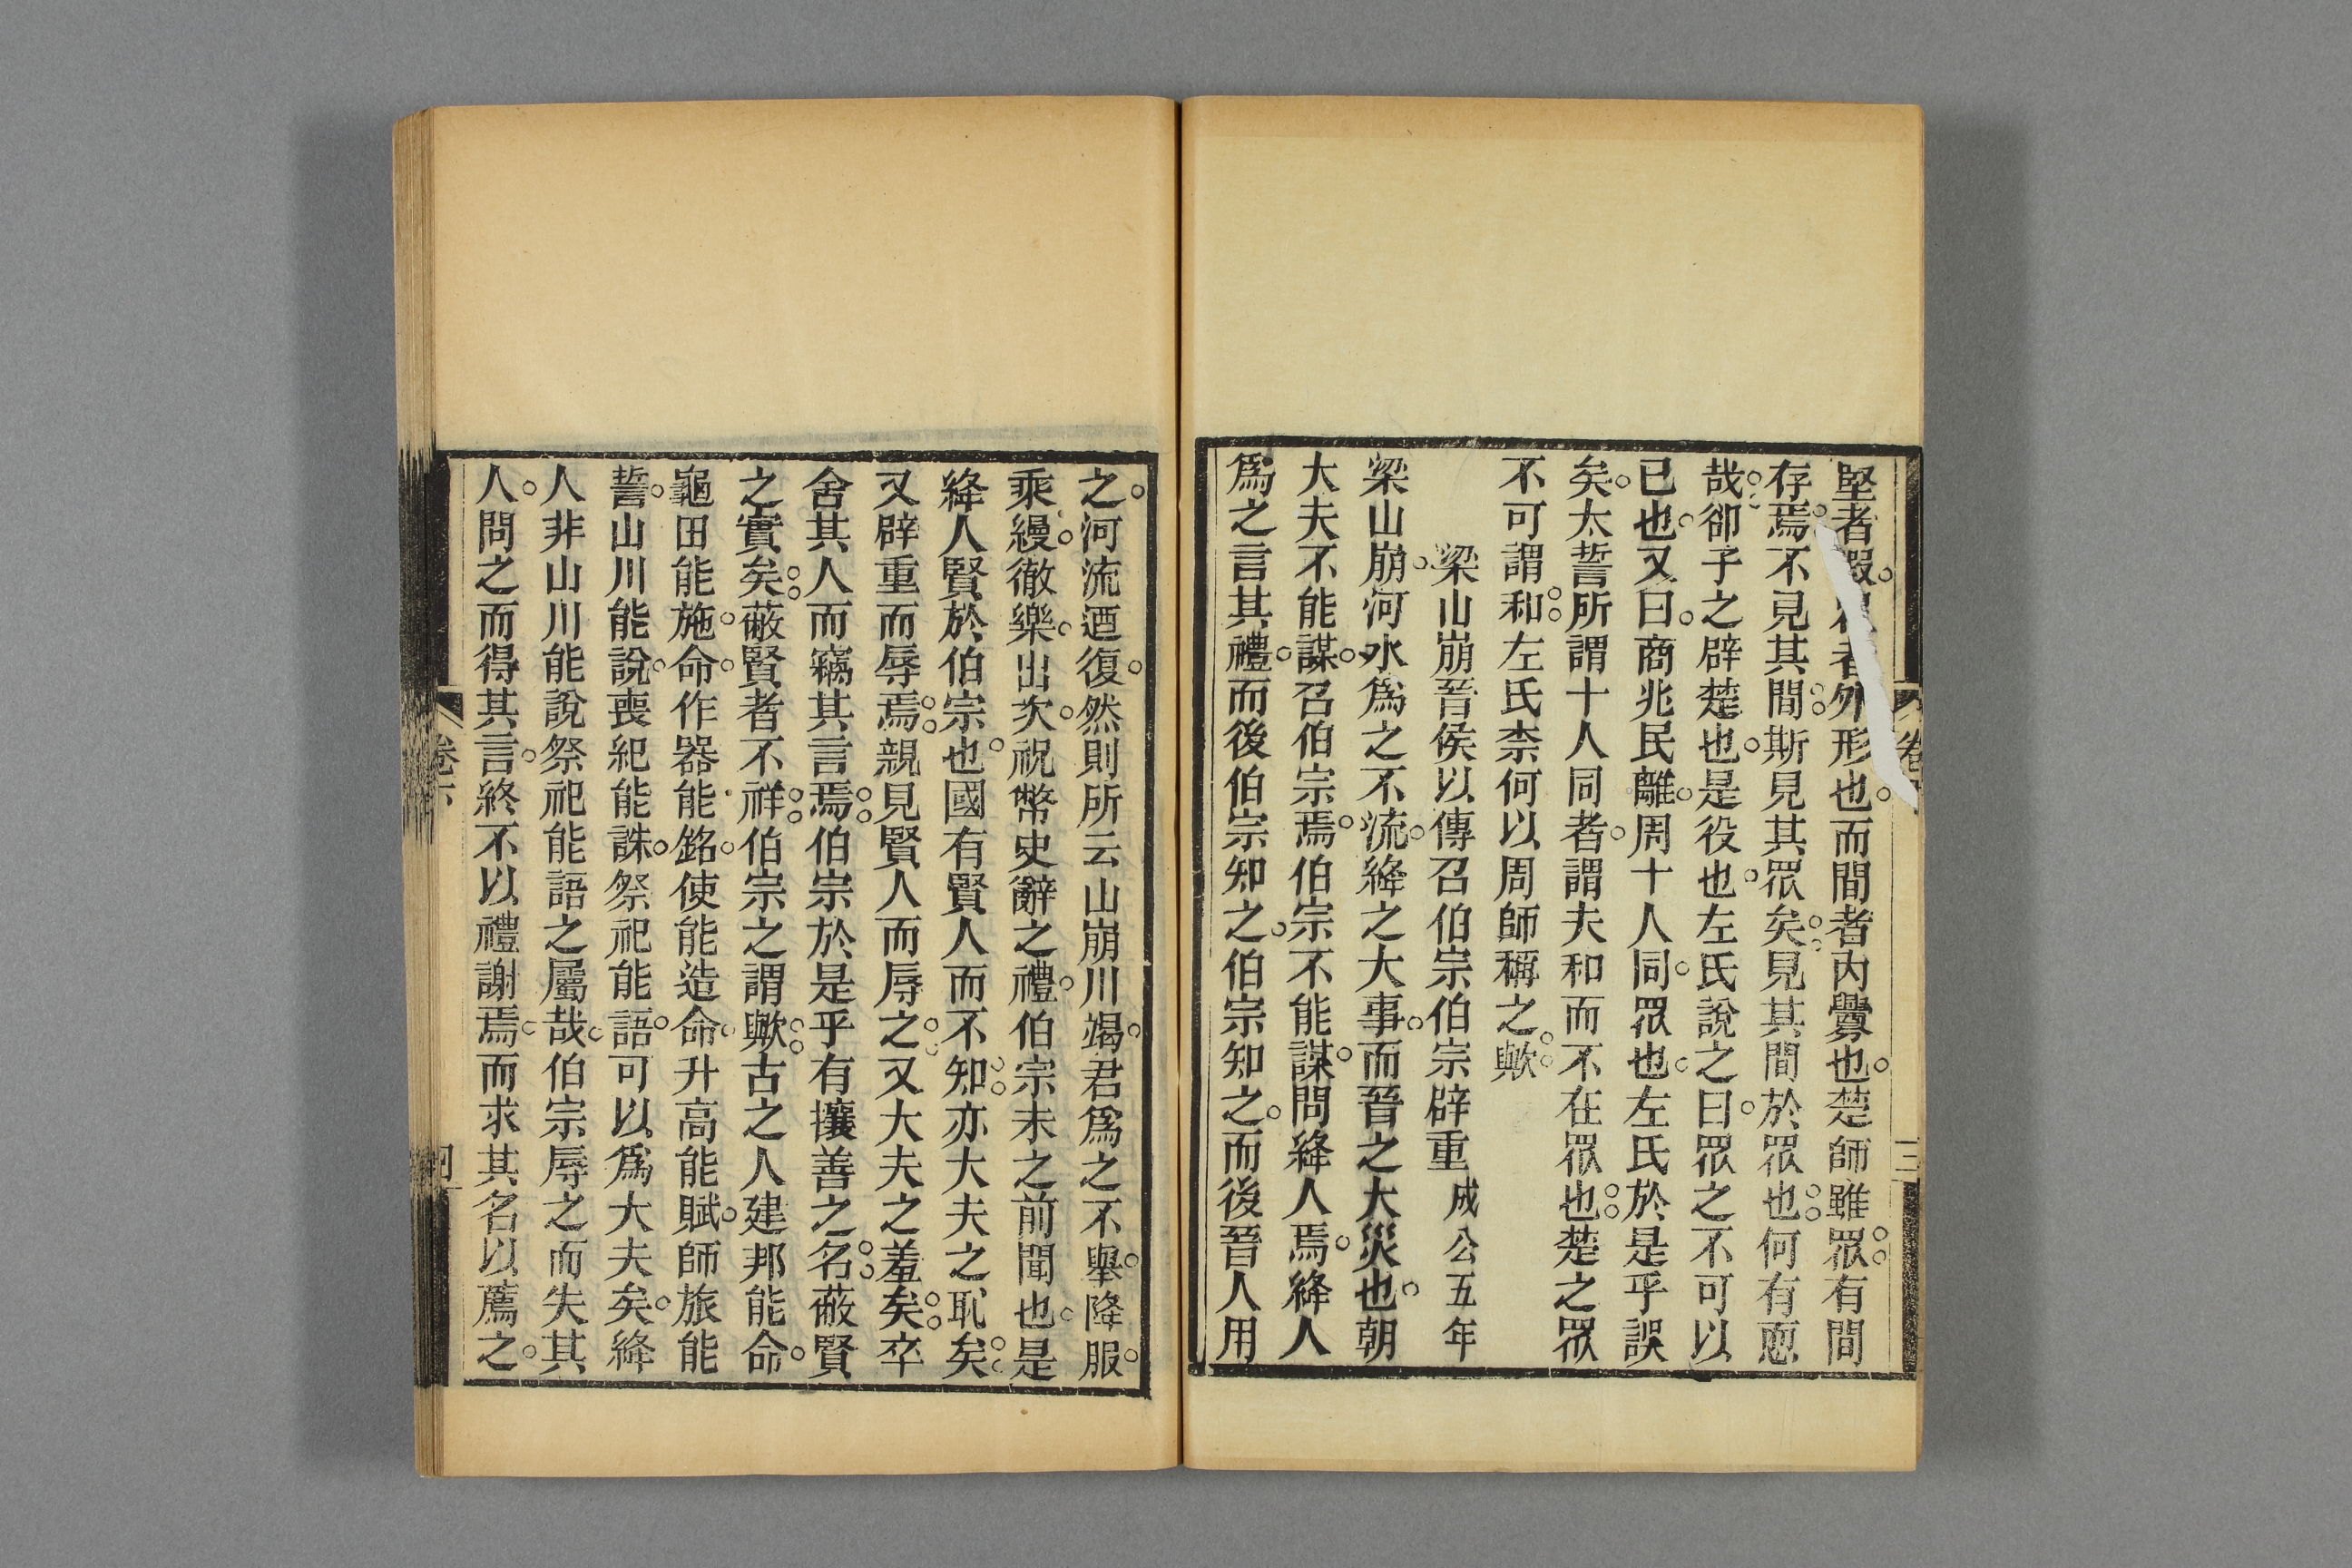 堅者瑕眾者外形也而間者內釁也楚師雖眾有間
存焉不見其間斯見其眾矣見其間於眾也何有愿
哉卻子之辟楚也是役也左氏說之曰眾之不可以
已也又曰商兆民離周十人同眾也左氏於是乎誤
矣太誓所謂十人同者謂夫和而不在眾也楚之眾
不可謂和左氏柰何以周師稱之歟
梁山崩晉侯以傳召伯宗伯宗辟重 成公五年
梁山崩河水為之不流絳之大事而晉之大災也朝
大夫不能謀召伯宗焉伯宗不能謀問絳人焉絳人
為之言其禮而後伯宗知之伯宗知之而後晉人用
之河流迺復然則所云山崩川竭君為之不舉降服
乘縵徹樂出次祝幣史辭之禮伯宗未之前聞也是
絳人賢於伯宗也國有賢人而不知亦大夫之恥矣
又辟重而辱焉親見賢人而辱之又大夫之羞矣卒
舍其人而竊其言焉伯宗於是乎有攘善之名蔽賢
之實矣蔽賢者不祥伯宗之謂歟古之人建邦能命
龜田能施命作器能銘使能造命升高能賦師旅能
誓山川能說喪紀能誄祭祀能語可以為大夫矣絳
人非山川能說祭祀能語之屬哉伯宗辱之而失其
人問之而得其言終不以禮謝焉而求其名以薦之
卷下